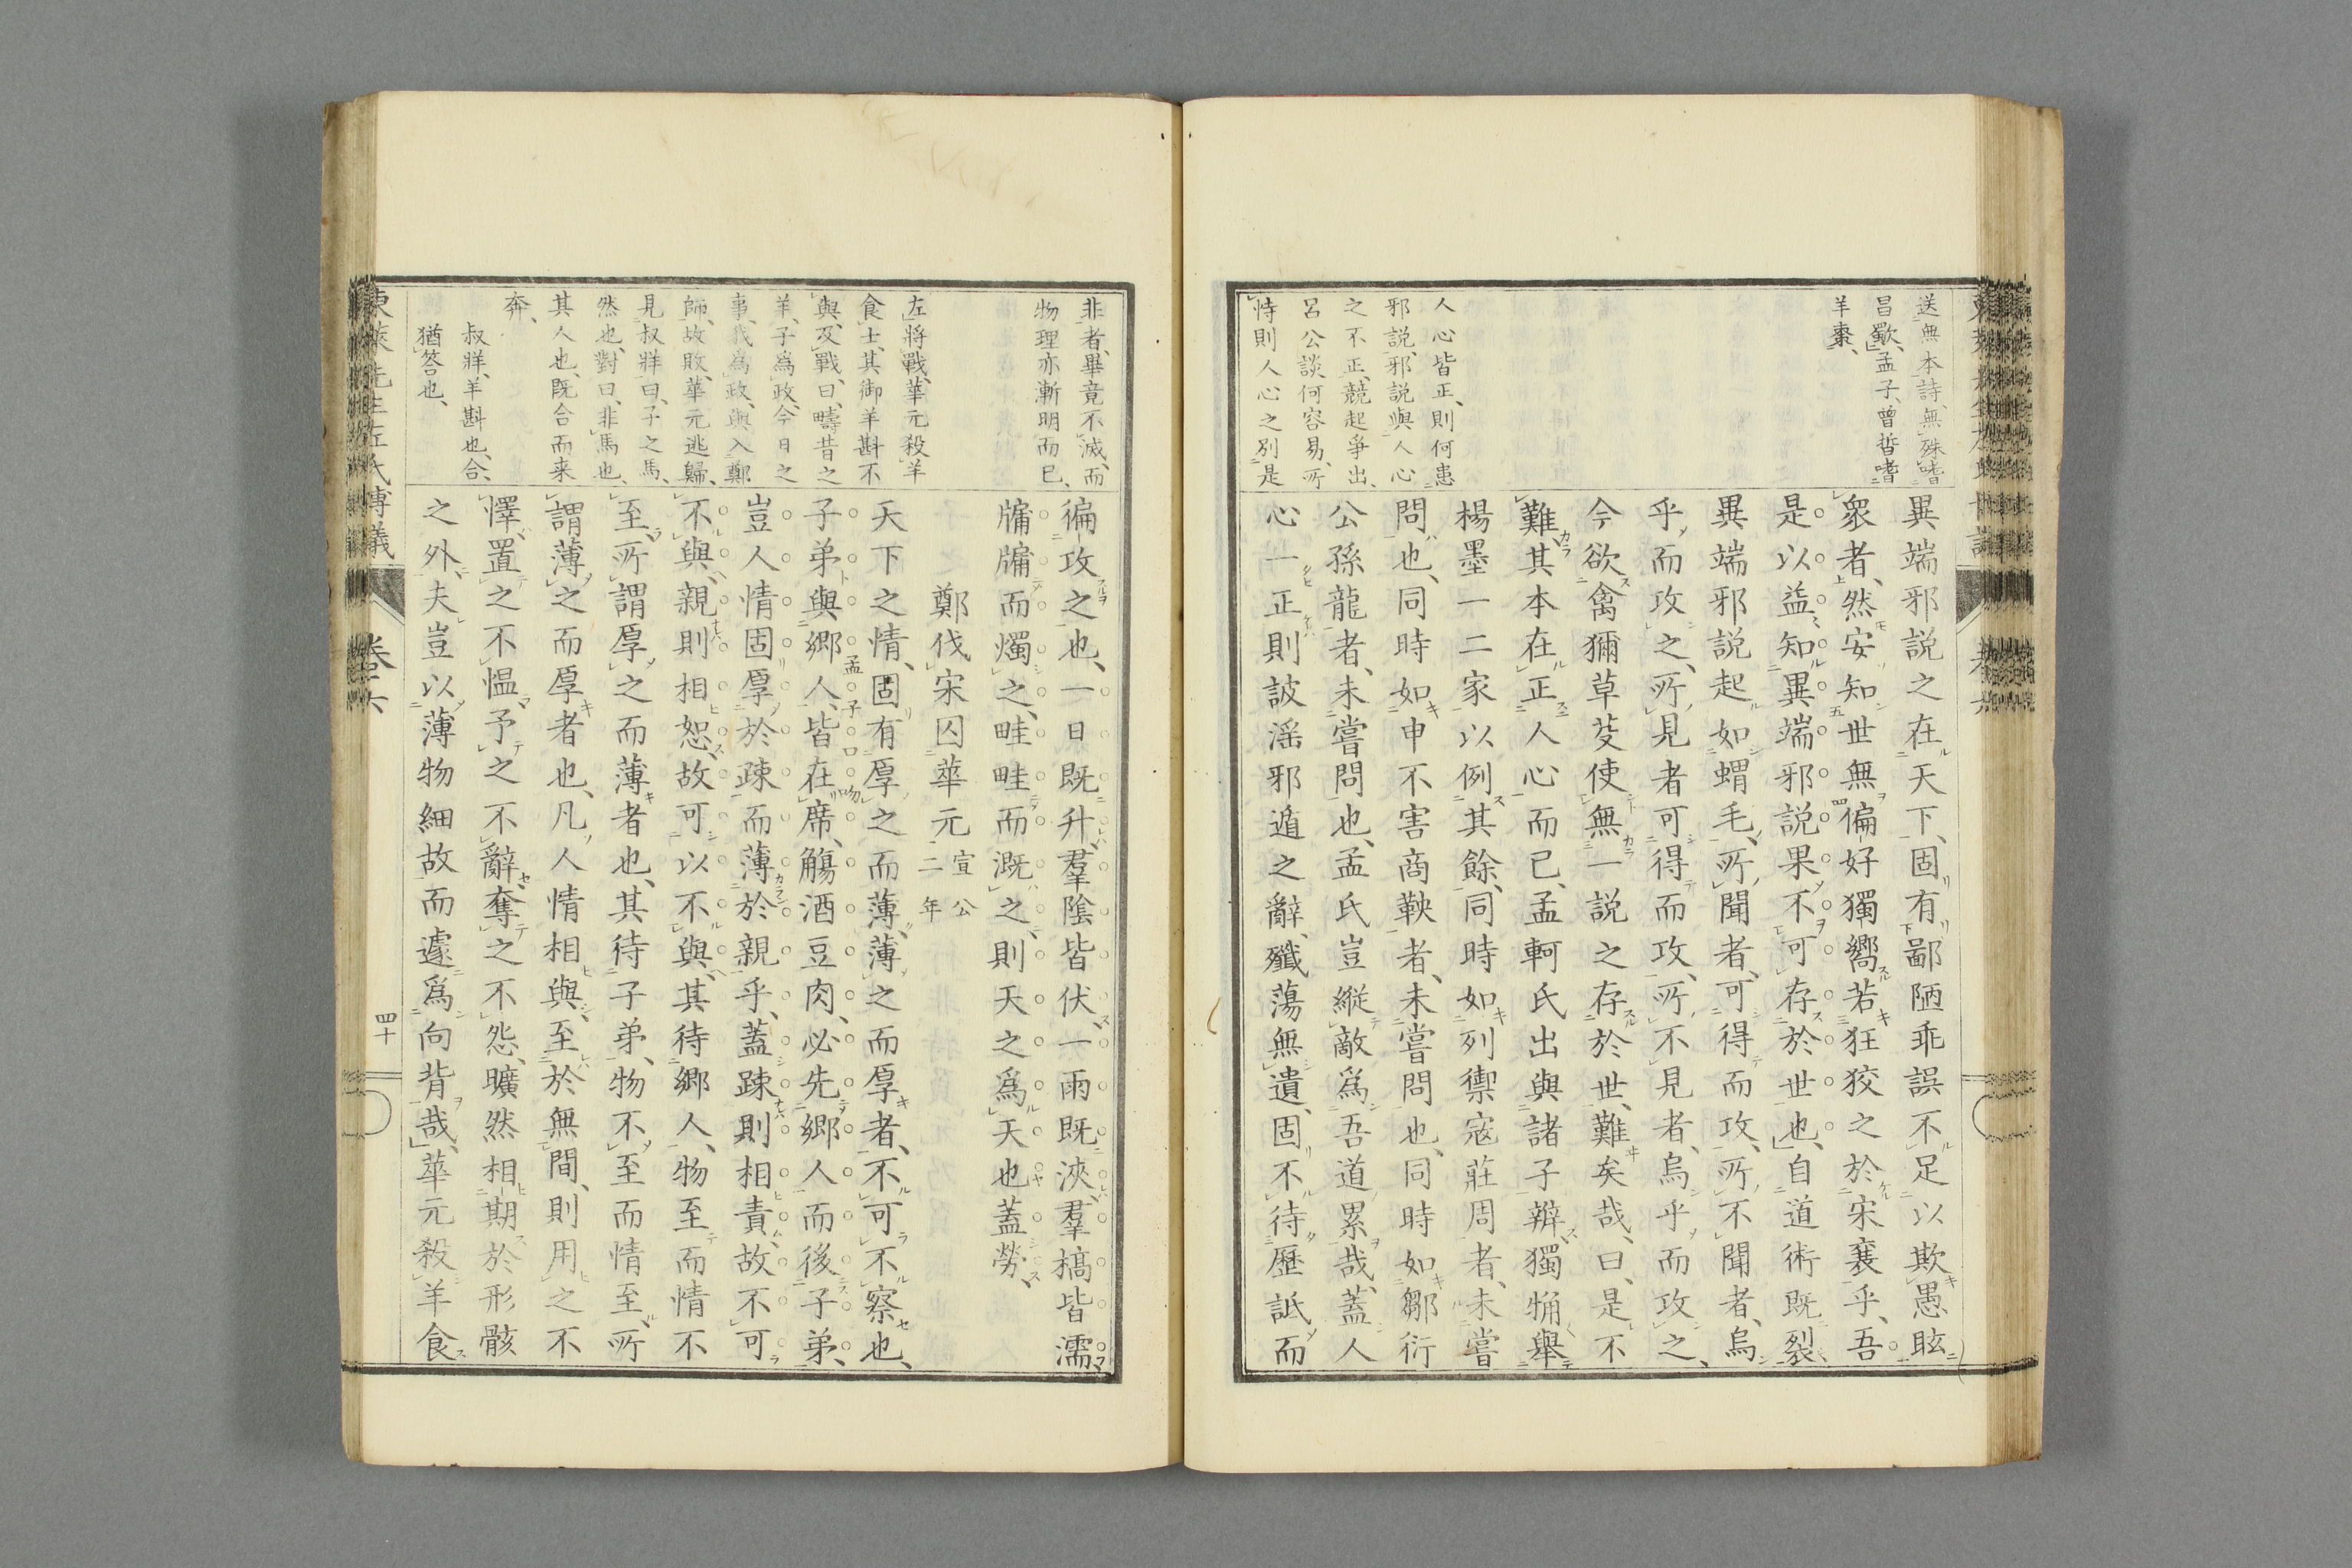 送無本詩、無殊嗜
昌歜、孟子、曾晳嗜
羊棗、
人心皆正、則何患
邪説、邪説與人心
之不正、競起爭出、
呂公談何容易、所
恃則人心之別是
異端邪説之在天下、固有鄙陋乖誤不足以欺愚眩
衆者、然安知世無偏好獨嚮若狂狡之於宋襄乎、吾
是以益知異端邪説果不可存於世也、自道術既裂
異端邪説起如蝟毛、所聞者、可得而攻、所不聞者、烏
乎而攻之、所見者可得而攻、所不見者、烏乎而攻之、
今欲禽獮草芟使無一説之存於世、難矣哉、曰、是不
難其本在正人心而已、孟軻氏出與諸子辯獨觕舉
楊墨一二家以例其餘、同時如列禦寇莊周者、未嘗
問也、同時如申不害商鞅者、未嘗問也、同時如鄒衍
公孫龍者、未嘗問也、孟氏豈縱敵爲吾道累哉、蓋人
心一正則詖淫邪遁之辭、殲蕩無遺、固不待歷詆而
非者、畢竟不滅、而
物理亦漸明而已、
左將戰、華元殺羊
食士、其御羊斟不
與、及戰、曰、疇昔之
羊、子爲政、今日之
事、我爲政、與入鄭
師、故敗、華元逃歸、
見叔牂曰、子之馬、
然也、對曰、非馬也、
其人也、既合而来
奔、
叔牂、羊斟也、合、
猶答也、
徧攻之也、一日既升、羣陰皆伏、一雨既浹、羣槁皆濡、
牖牖而燭之、畦畦而溉之、則天之爲天也蓋勞、
鄭伐宋囚華元 宣公二年
天下之情、固有厚之而薄、薄之而厚者、不可不察也、
子弟與鄉人、皆在席、觴酒豆肉、必先鄉人而後子弟、
豈人情固厚於踈而薄於親乎、蓋踈則相責、故不可
不與、親則相恕、故可以不與、其待鄉人、物至而情不
至、所謂厚之而薄者也、其待子弟、物不至而情至、所
謂薄之而厚者也、凡人情相與、至於無間、則用之不
懌、置之不慍、予之不辭、奪之不怨、曠然相期於形骸
之外、夫豈以薄物細故而遽爲向背哉、華元殺羊食
東萊先生左氏博議
卷六
四十